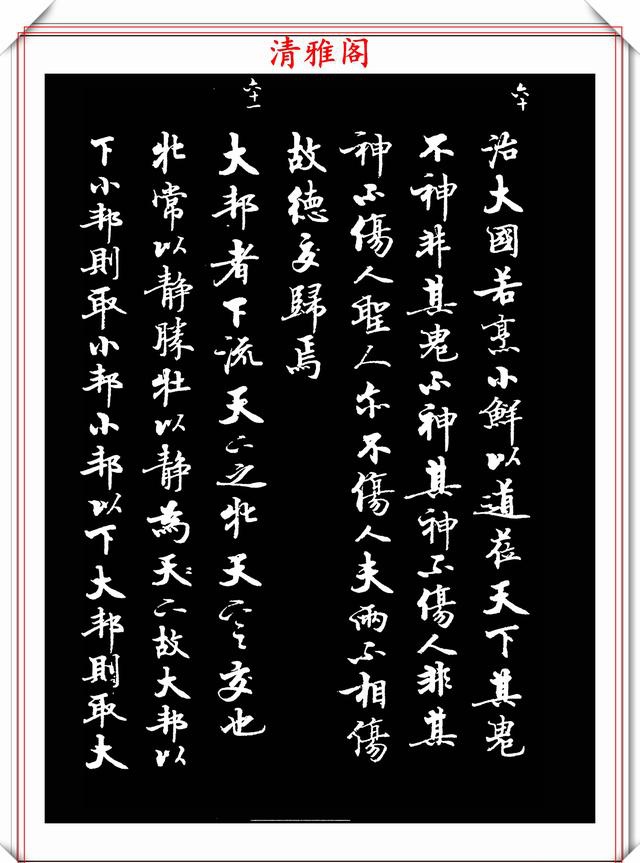 清雅阁
六十
治大國若烹小鮮以道莅天下其鬼
不神非其鬼不神其神不傷人非其
神不傷人聖人亦不傷人夫兩不相傷
故德交歸焉
六十一
大邦者下流天下之牝天下之交也
牝常以静勝牡以静為天下故大邦以
下小邦則取小邦小邦以下大邦則取大